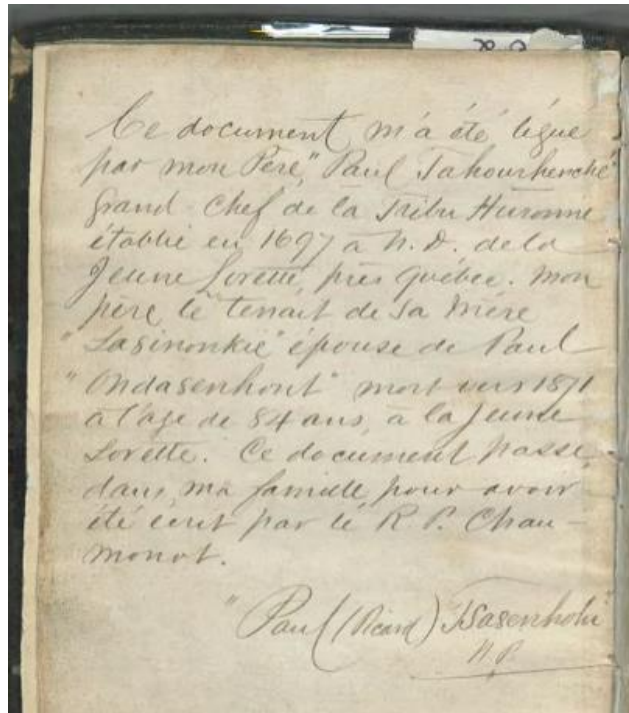 Ce document m'a été légué
par mon Père, "Paul Tahourhenché"
Grand Chef de la Tribu Huronne
établie en 1697 à N. D. de la
Jeune Lorette, près Québec. Mon
père le tenait de sa Mère
"Lasinonkie" épouse de Paul
"Ondasenhont" mort vers 1871
à l'age de 84 ans, à la Jeune
Lorette. Ce document passe,
dans ma famille pour avoir
été écrit par le R. P. Chau-
monot.
"Paul (Picard) Tsasenhohi"
N.P.